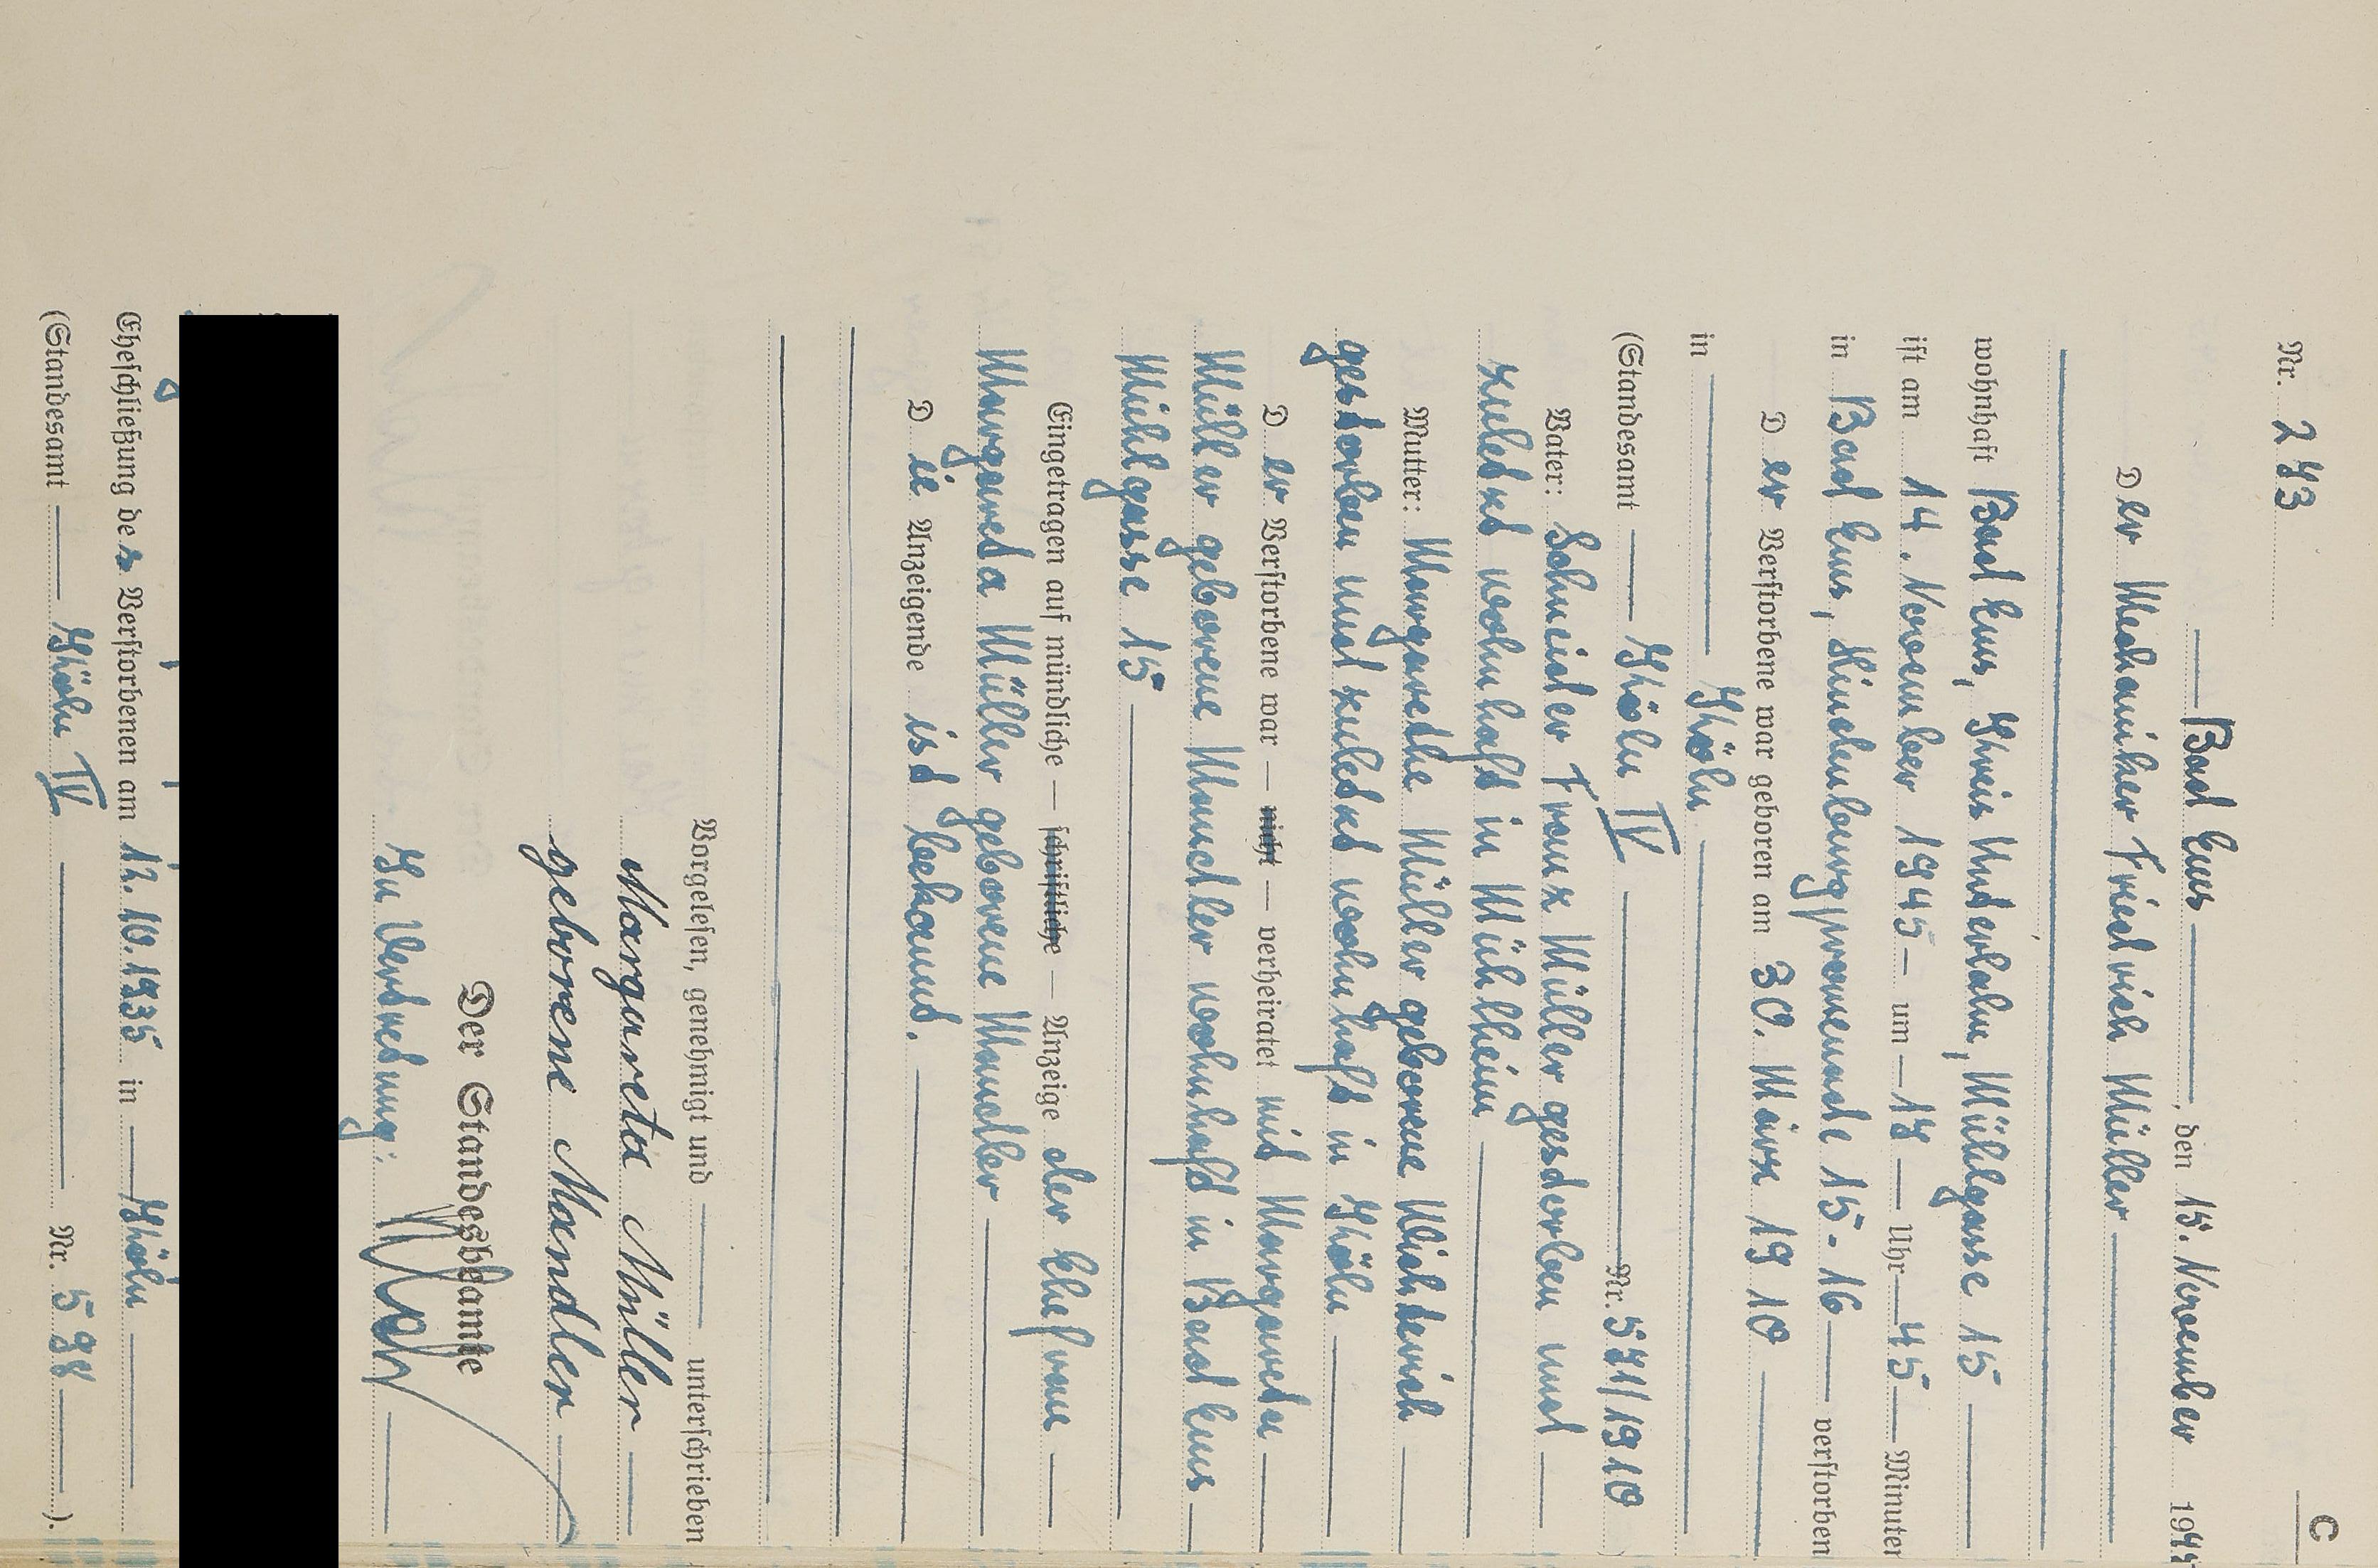 C
Nr. 243
Bad Ems, den 15. November 1945
Der Mechaniker Friedrich Müller
wohnhaft Bad Ems, Kreis Unterlahn, Mühlgasse 15
ist am 14. November 1945 um 18 Uhr 45 Minuten
in Bad Ems, Hindenburgpromenade 15-16 verstorben
Der Verstorbene war geboren am 30. März 1910
in Köln
(Standesamt Köln IV Nr. 571/1910
Vater: Schneider Franz Müller gestorben und
zuletzt wohnhaft in Mühlheim
Mutter: Margarethe Müller geborene
gestorben und zuletzt wohnhaft in Köln
Der Verstorbene war — nicht — verheiratet mit Margareta
Müller geborene Mandler wohnhaft in Bad Ems
Mühlgasse 15
Eingetragen auf mündliche — schriftliche — Anzeige der Ehefrau
Margareta Müller geborene Mandler
Die Anzeigende ist bekannt.
Vorgelesen, genehmigt und unterschrieben
Margareta Müller
geborene Mandler
Der Standesbeamte
In Vertretung:
Eheschließung des Verstorbenen am 12. 10. 1935 in Köln
(Standesamt Köln IV Nr. 598).